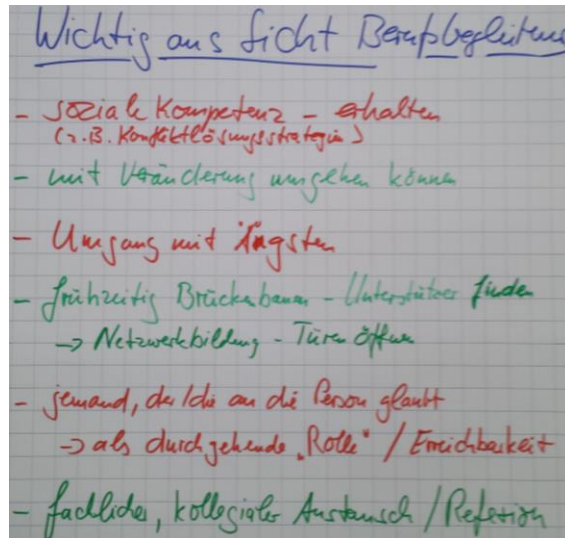 Wichtig aus Sicht Berufsbegleitung
- soziale Kompetenz - erhalten
(z.B. Konfliktlösungsstrategien)
- mit Veränderung umgehen können
- Umgang mit Ängsten
- frühzeitig Brückenbauer - Unterstützer finden
-> Netzwerkbildung - Türen öffnen
- jemand, der/die an die Person glaubt
-> als durchgehende „Rolle" / Erreichbarkeit
- fachlicher, kollegialer Austausch / Reflexion